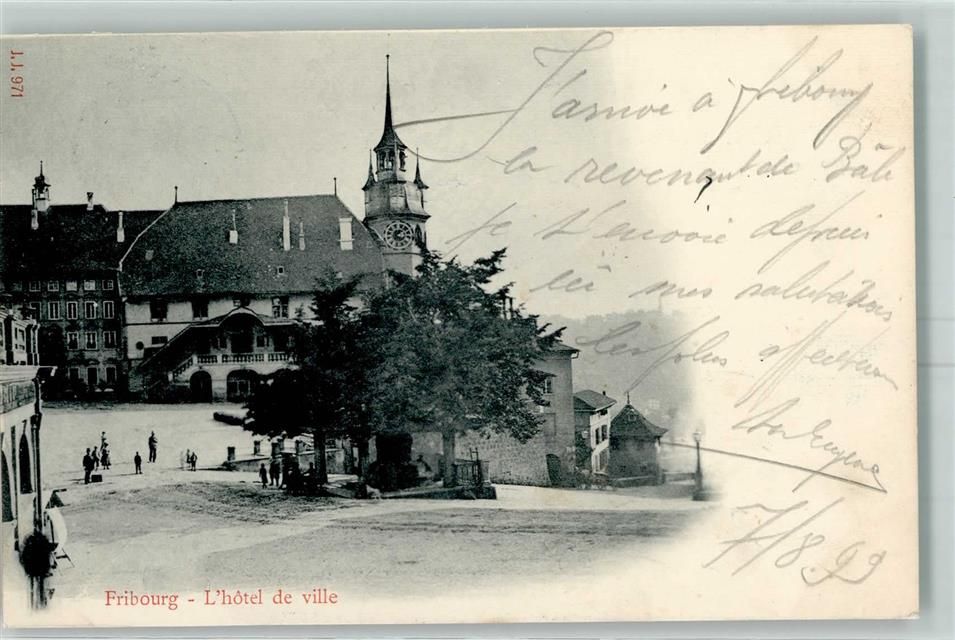 J.J. 971
J'arrive à Fribourg
la revenant de Bâle
je t'envoie depuis
ici mes salutations
les plus
7/8.99
Fribourg - L'hôtel de ville